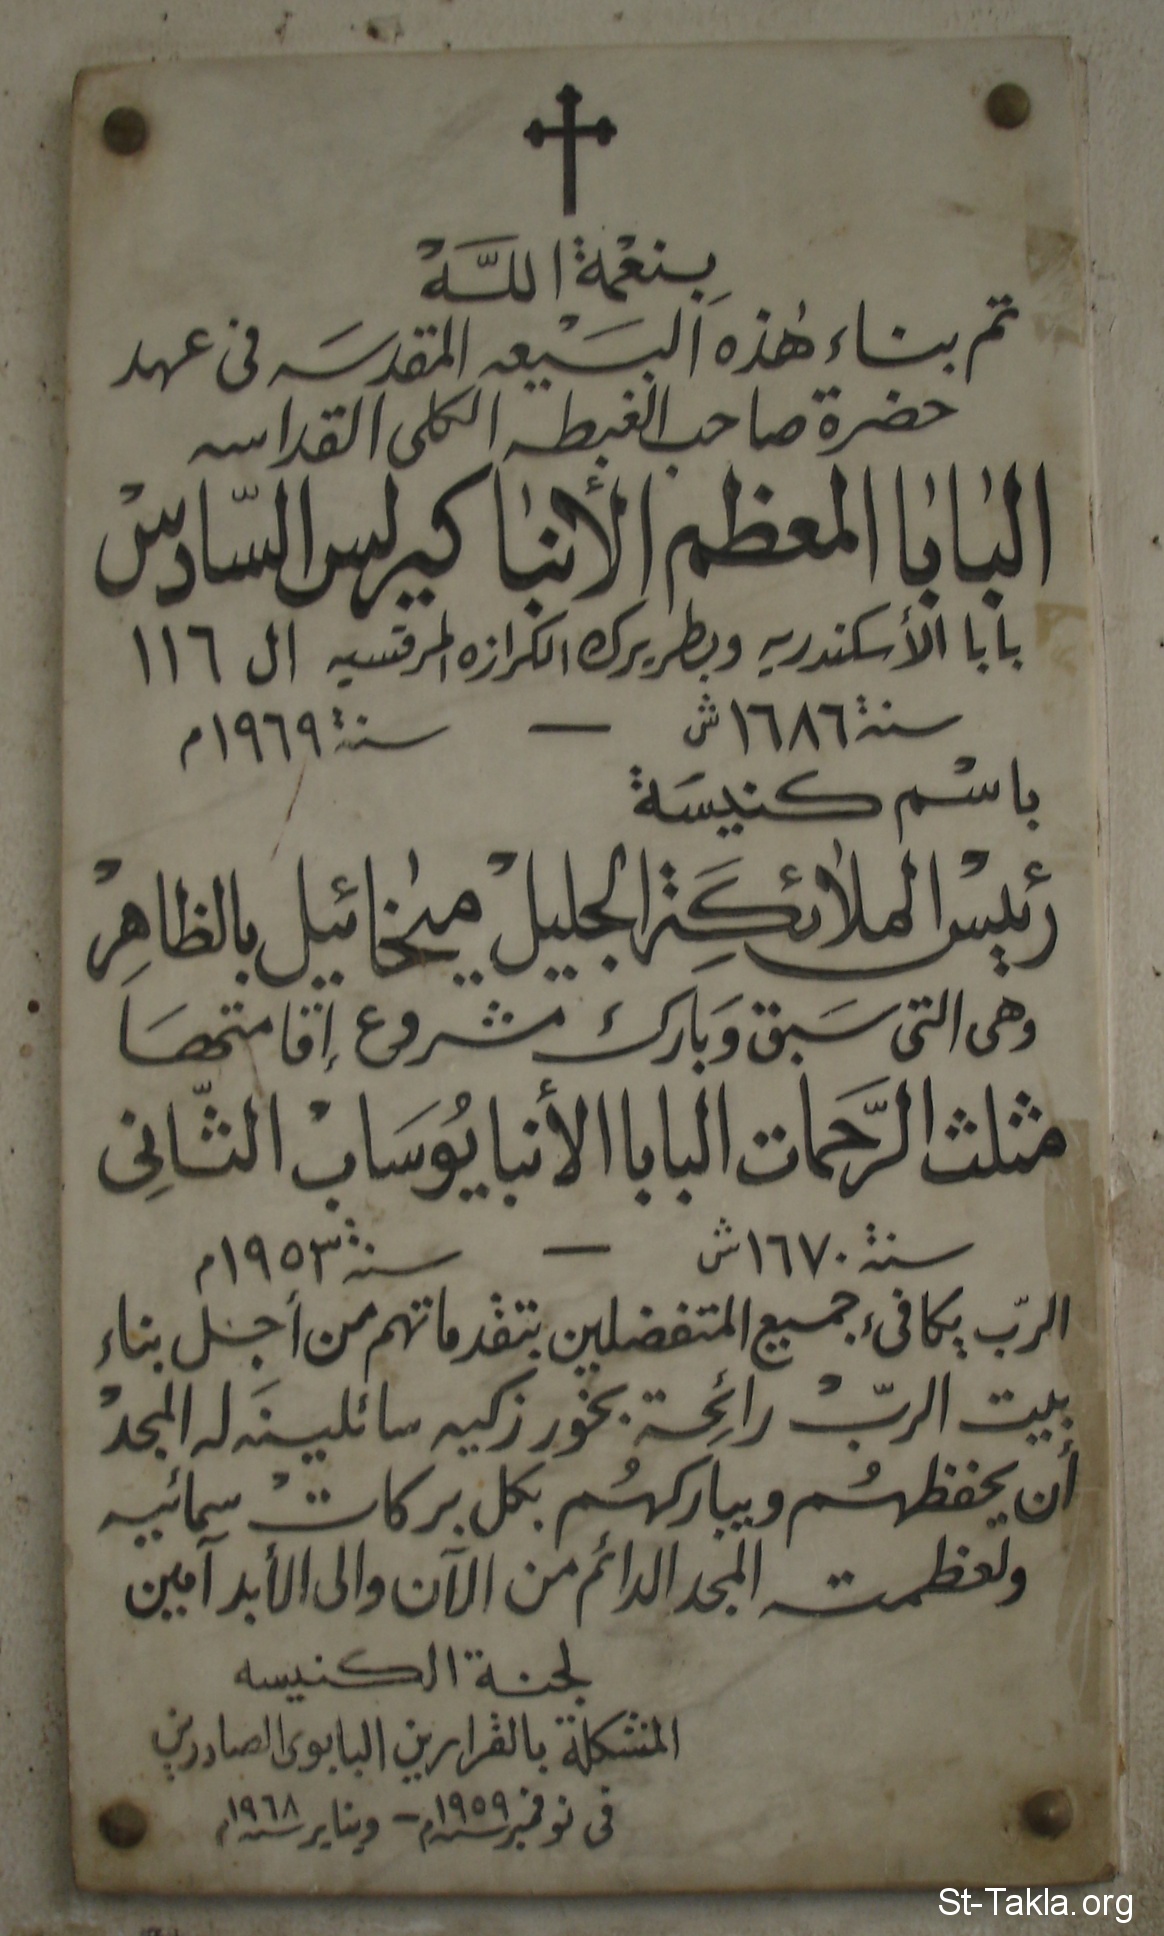 بنعمة اللّه
تم بناء هذه البَيعه المقدسَه فى عهد
حضرة صاحب الغبطه الكلى القداسه
البابا المعظم الأنبا كيرلس السّادس
بابا الأسكندريه وبطريرك الكرازه المرقسيه ال ١١٦
سنة ١٦٨٦ ش — سنة ١٩٦٩ م
باسْم كنيسَة
رئيسْ الملائكَة الجليلْ ميخائيل بالظاهِرْ
وهى التى سَبق وَبارك مشروع إقامتهَا
مثلث الرَّحمات البابا الأنبا يُوسَابْ الثّانِى
سنة ١٦٧٠ ش — سنة ١٩٥٣ م
الربّ يكافىء جميع المتفضلين بتقدماتهم من أجل بناء
بيت الربّ رائحة بخور زكيه سائلينَه له المجدْ
أن يحفظهُم ويباركهُم بكل بركاتْ سمائيه
ولعظمته المجد الدائم من الآن والى الأبد آمين
لجنة الكنيسه
المشكلة بالقرارين البابوى الصادرين
فى نوفمبر سنة ١٩٥٩م - ويناير سنة ١٩٦٨م
St-Takla.org